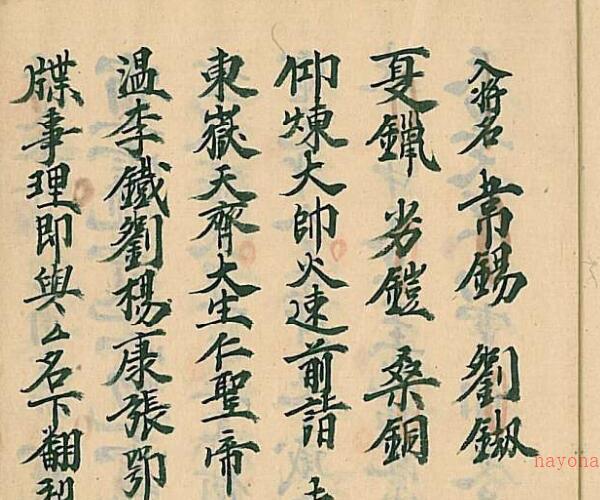 入將名 常錫 劉𨧱
夏鑞 劣鎧 桑銅
仰煉大帥火速前詣
東嶽天齊大生仁聖帝
温李鐵劉楊康張鄂
牒事理即與厶名下翻
nayona